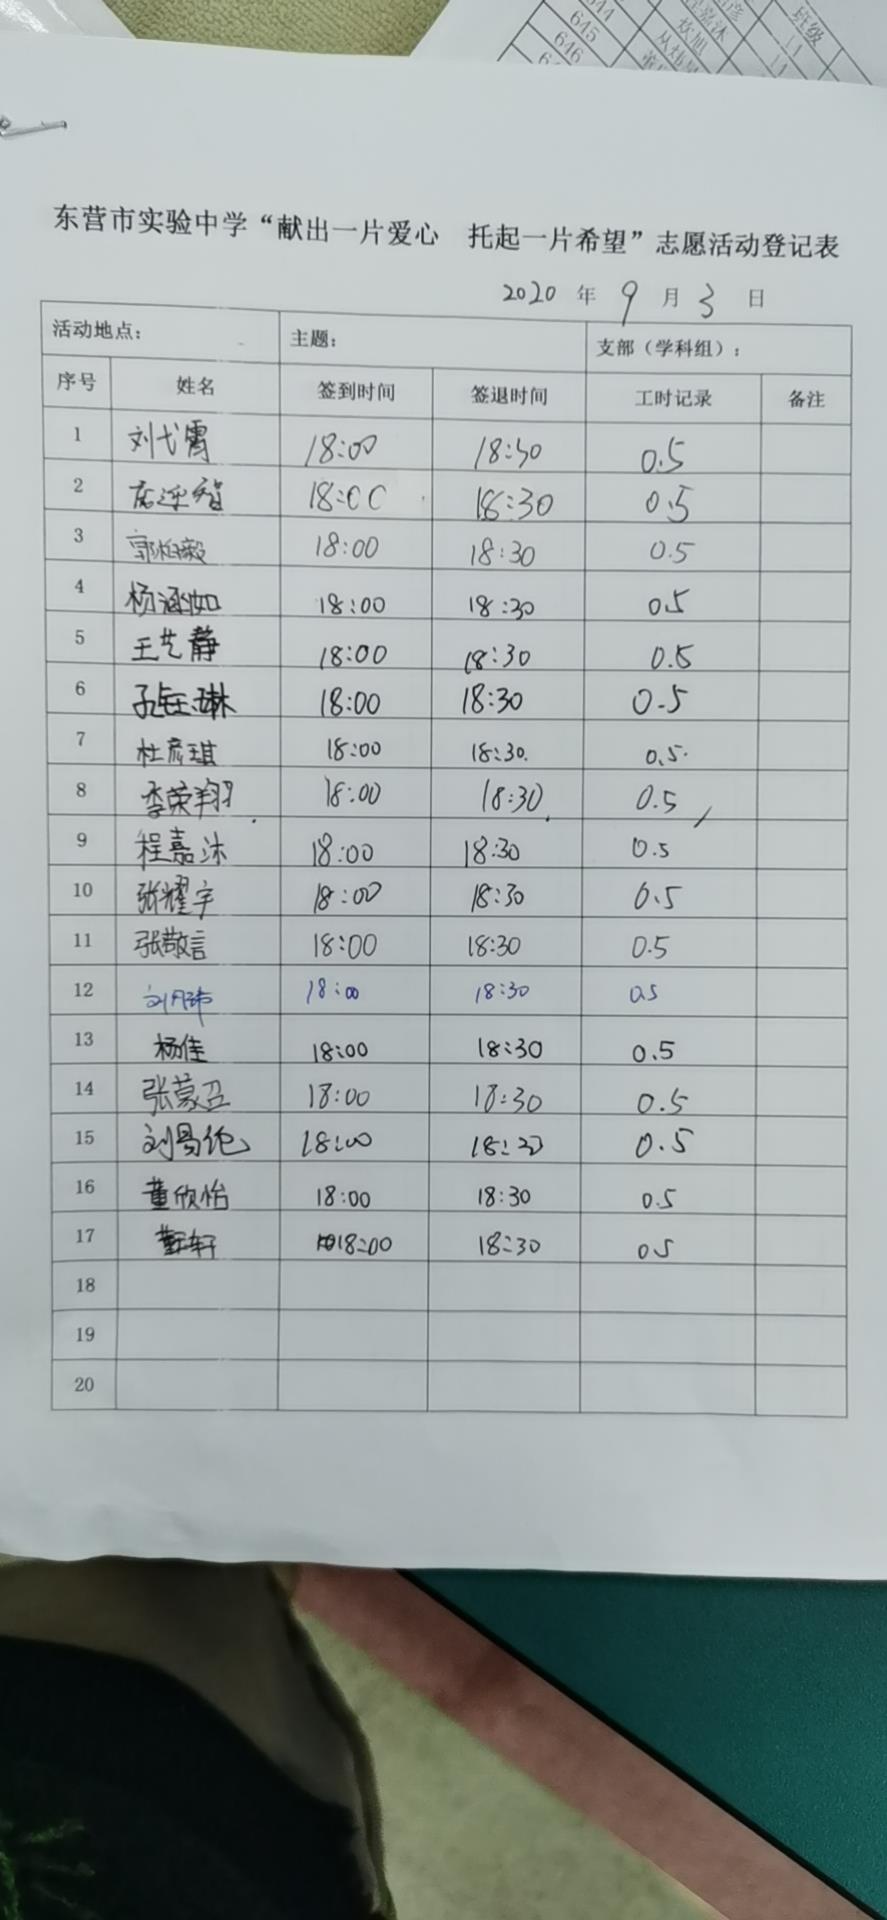 644
645
646
班级
东营市实验中学“献出一片爱心 托起一片希望”志愿活动登记表
2020 年 9 月 3 日
活动地点： 主题： 支部（学科组）：
序号 姓名 签到时间 签退时间 工时记录 备注
1 刘弋霄 18:00 18:30 0.5
2 18:00 18:30 0.5
3 郭柏毅 18:00 18:30 0.5
4 杨涵如 18:00 18:30 0.5
5 王艺静 18:00 18:30 0.5
6 孔钰琳 18:00 18:30 0.5
7 杜彦琪 18:00 18:30 0.5
8 李荣翔 18:00 18:30 0.5
9 程嘉沐 18:00 18:30 0.5
10 张耀宇 18:00 18:30 0.5
11 张敬言 18:00 18:30 0.5
12 18:00 18:30 0.5
13 杨佳 18:00 18:30 0.5
14 张蒙召 18:00 18:30 0.5
15 刘昌伦 18:00 18:30 0.5
16 董欣怡 18:00 18:30 0.5
17 18:00 18:30 0.5
18
19
20